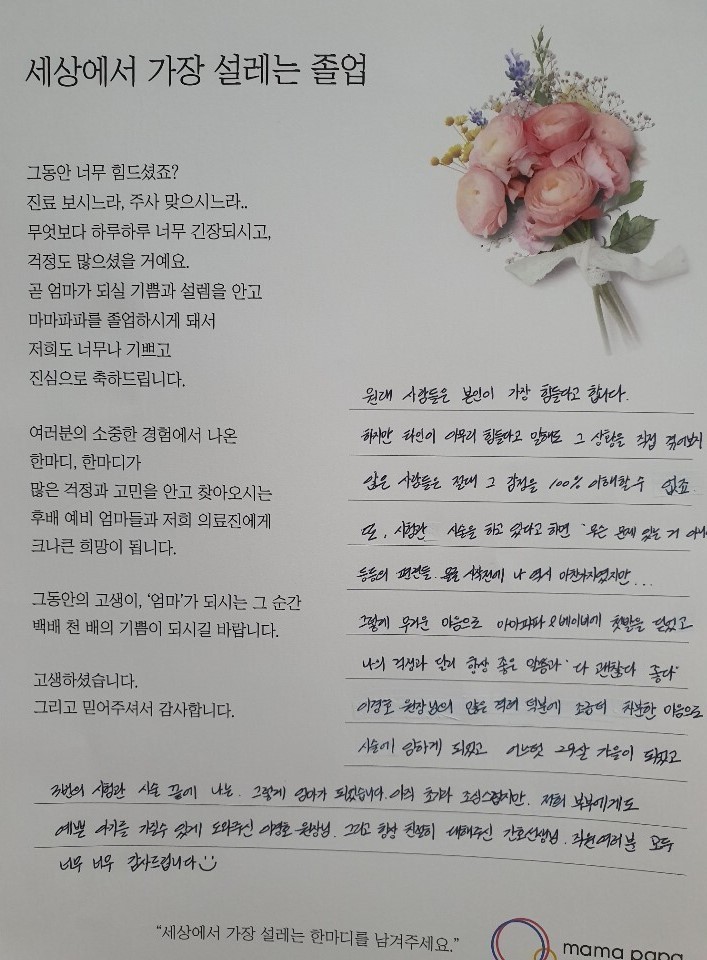 세상에서 가장 설레는 졸업
그동안 너무 힘드셨죠?
진료 보시느라, 주사 맞으시느라..
무엇보다 하루하루 너무 긴장되시고,
걱정도 많으셨을 거예요.
곧 엄마가 되실 기쁨과 설렘을 안고
마마파파를 졸업하시게 돼서
저희도 너무나 기쁘고
진심으로 축하드립니다.
여러분의 소중한 경험에서 나온
한마디, 한마디가
많은 걱정과 고민을 안고 찾아오시는
후배 예비 엄마들과 저희 의료진에게
크나큰 희망이 됩니다.
그동안의 고생이, '엄마'가 되시는 그 순간
백배 천 배의 기쁨이 되시길 바랍니다.
고생하셨습니다.
그리고 믿어주셔서 감사합니다.
원래 사람들은 본인이 가장 힘들다고 합니다.
하지만 타인이 아무리 힘들다고 말해도 그 상황을 직접 겪어보지
않은 사람들은 절대 그 감정을 100% 이해할 수 없죠
또, 시험관 시술을 하고 있다고 하면 '무슨 문제 있는 거 아냐
등등의 편견들. 물론 시작전에 나 역시 마찬가지였지만...
그렇게 무거운 마음으로 마마파파&베이비에 첫발을 딛었고
나의 걱정과 달리 항상 좋은 말씀과 '다 괜찮다 좋다'
이경호 원장님의 많은 격려 덕분에 조금더 차분한 마음으로
시술에 임하게 되었고 어느덧 가을이 되었고
3번의 시험관 시술 끝에 나는. 그렇게 엄마가 되었습니다. 아직 초기라 조심스럽지만. 저희 부부에게도
예쁜 아기를 가질수 있게 도와주신 이경호 원장님. 그리고 항상 친절히 대해주신 간호선생님. 직원여러분 모두
너무 너무 감사드립니다
"세상에서 가장 설레는 한마디를 남겨주세요."
mama papa